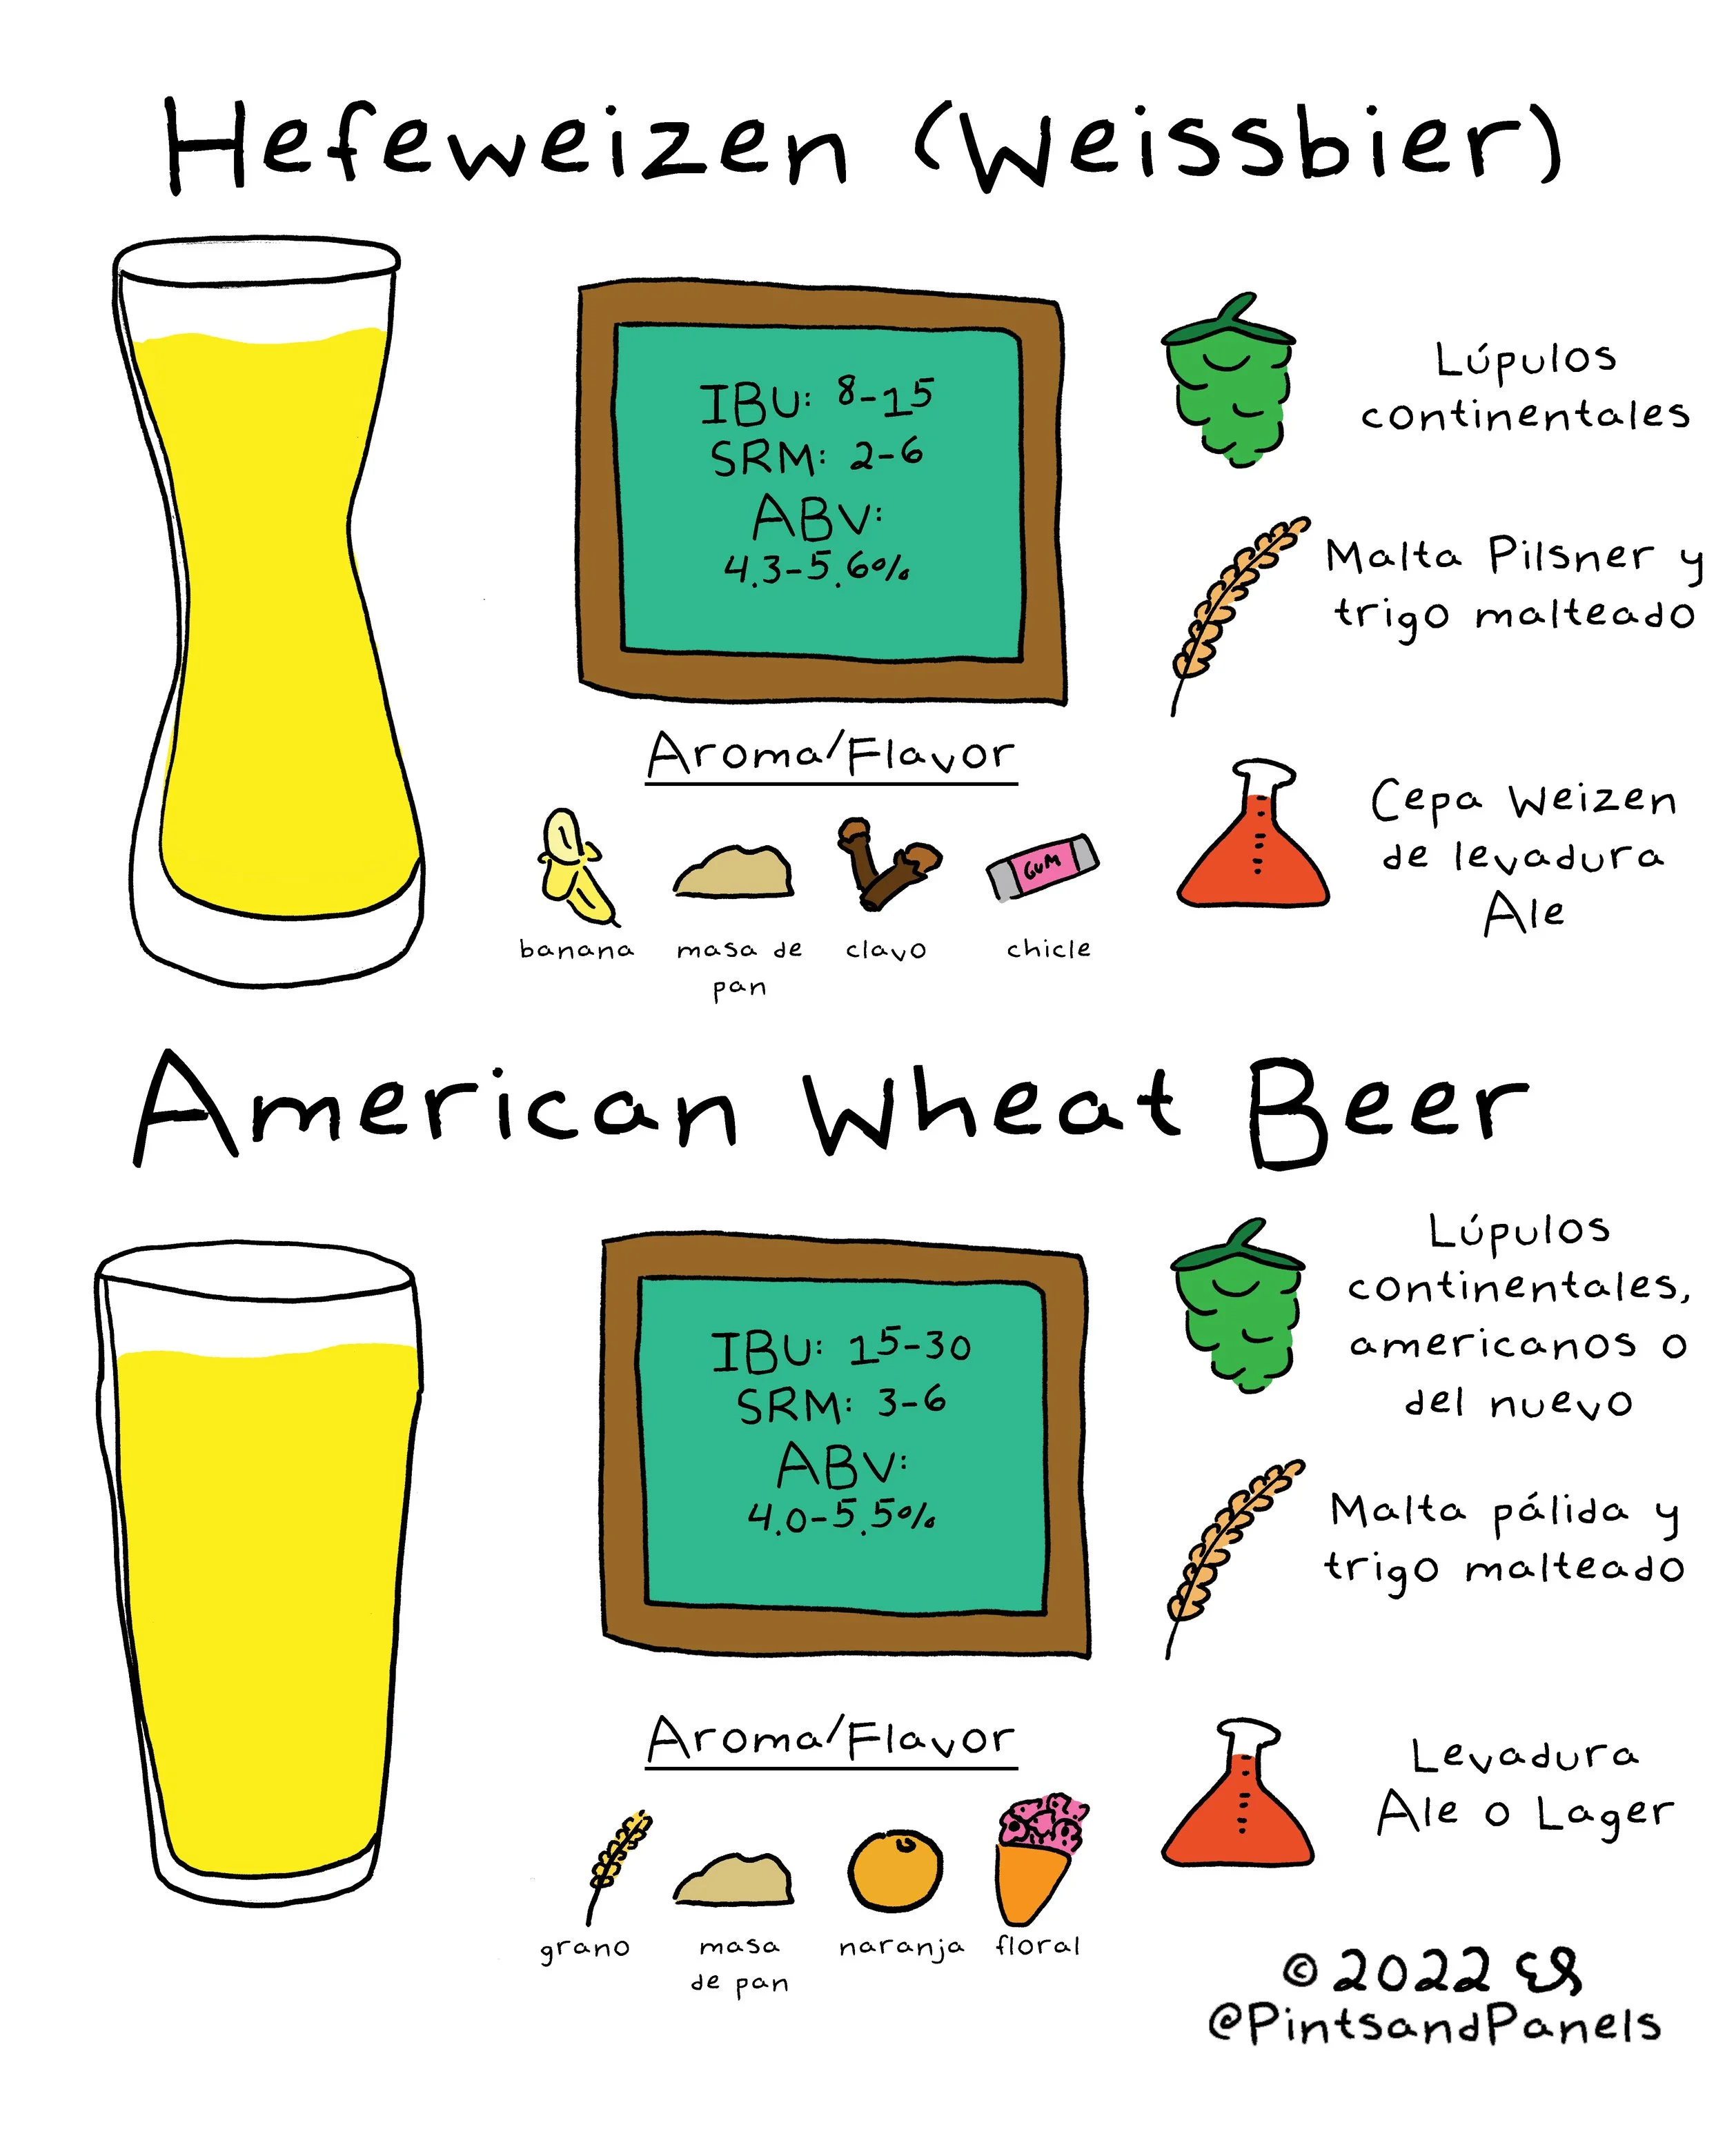 Hefeweizen (Weissbier)
IBU: 8-15
SRM: 2-6
ABV:
4.3-5.6%
Aroma/Flavor
GUM
banana
masa de
pan
clavo
chicle
Lúpulos
continentales
Malta Pilsner y
trigo malteado
Cepa Weizen
de levadura
Ale
American Wheat Beer
IBU: 15-30
SRM: 3-6
ABV:
4.0-5.5%
Aroma/Flavor
grano
masa
de pan
naranja
floral
Lúpulos
continentales,
americanos o
del nuevo
Malta pálida y
trigo malteado
Levadura
Ale o Lager
© 2022
@PintsandPanels